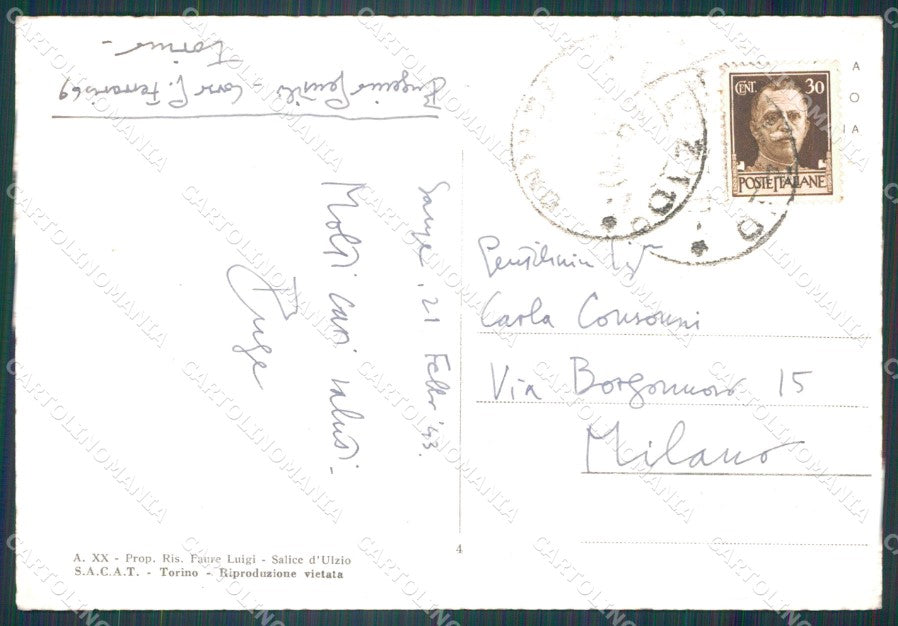 Eugenio Gentili - Corso G. Ferraris 69
Torino -
Sauze, 21 Febbr '43.
Molti cari saluti.
Euge
CENT. 30
POSTE ITALIANE
A
O
IA
Gentilissima Sig.na
Carla Consonni
Via Borgonuovo 15
Milano
4
A. XX - Prop. Ris. Faure Luigi - Salice d'Ulzio
S.A.C.A.T. - Torino - Riproduzione vietata
CARTOLINOMANIA